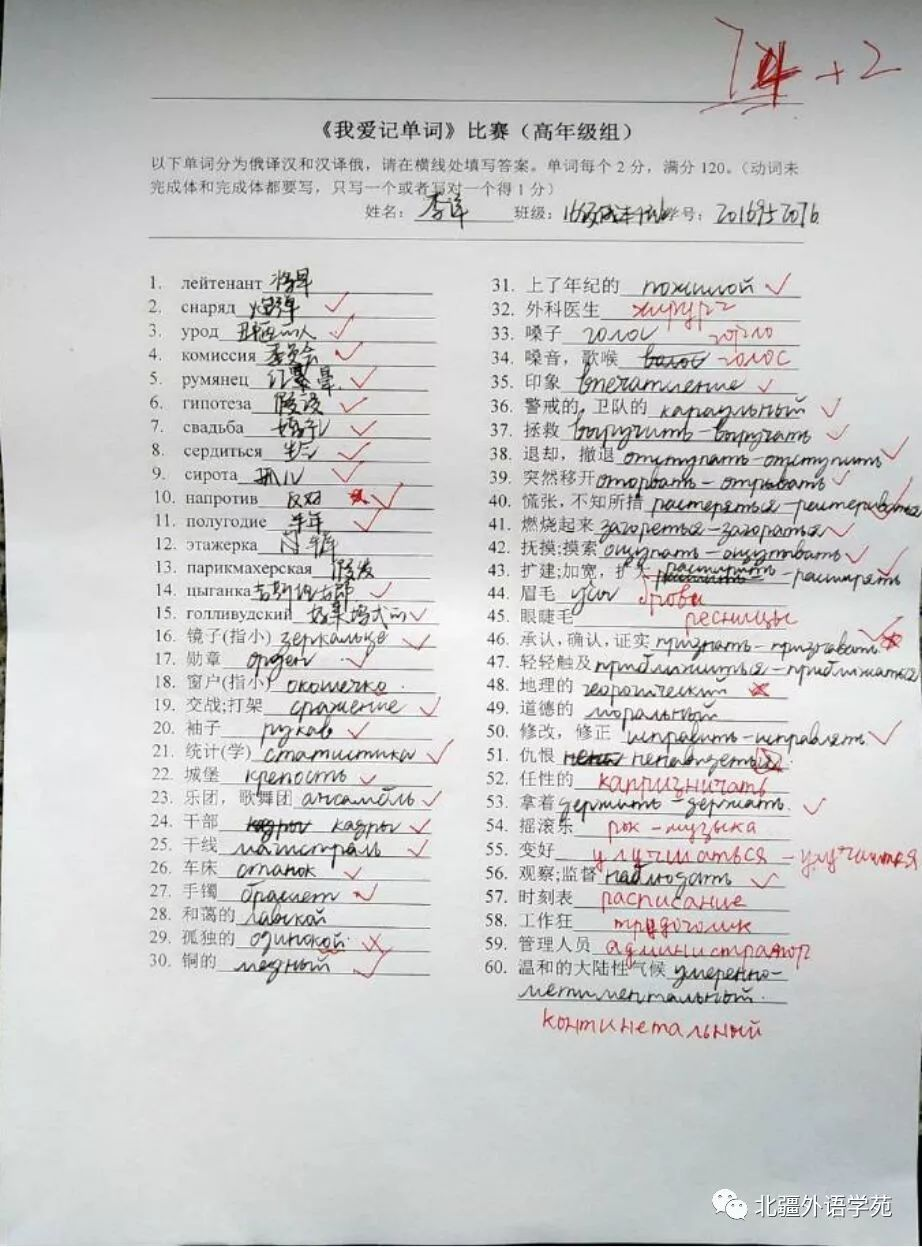 +2
《我爱记单词》比赛（高年级组）
以下单词分为俄译汉和汉译俄，请在横线处填写答案。单词每个2分，满分120。（动词未
完成体和完成体都要写，只写一个或者写对一个得1分）
姓名： 班级： 学号：2016952076
1. лейтенант
2. снаряд 炮弹
3. урод 丑陋的人
4. комиссия 委员会
5. румянец 红晕
6. гипотеза 假设
7. свадьба 婚礼
8. сердиться 生气
9. сирота 孤儿
10. напротив 反对
11. полугодие 半年
12. этажерка
13. парикмахерская 假发
14. цыганка
15. голливудский 好莱坞式的
16. 镜子(指小) зеркальце
17. 勋章 орден
18. 窗户(指小) окошечко
19. 交战;打架 сражение
20. 袖子 рукав
21. 统计(学) статистика
22. 城堡 крепость
23. 乐团，歌舞团 ансамбль
24. 干部 кадры кадры
25. 干线 магистраль
26. 车床 станок
27. 手镯 браслет
28. 和蔼的 лавской
29. 孤独的 одинокой
30. 铜的 медный
31. 上了年纪的 пожилой
32. 外科医生 хирург
33. 嗓子 голос горло
34. 嗓音，歌喉 волос голос
35. 印象 впечатление
36. 警戒的, 卫队的 караульный
37. 拯救 выручить-выручать
38. 退却，撤退 отступать-отступить
39. 突然移开 оторвать-отрывать
40. 慌张, 不知所措 растеряться-растериваться
41. 燃烧起来 загореться-загораться
42. 抚摸;摸索 ощупать-ощупывать
43. 扩建;加宽，扩大 расширить-расширять
44. 眉毛 усы брови
45. 眼睫毛 ресницы
46. 承认, 确认, 证实 признать-признавать
47. 轻轻触及 приближиться-приближаться
48. 地理的 георогический
49. 道德的 моральный
50. 修改，修正 исправить-исправлять
51. 仇恨 ненавидеть
52. 任性的 капризничать
53. 拿着 держить-держать
54. 摇滚乐 рок-музыка
55. 变好 улучшаться - улучшиться
56. 观察;监督 наблюдать
57. 时刻表 расписание
58. 工作狂 трудоголик
59. 管理人员 администратор
60. 温和的大陆性气候 умеренно-
метиментальный.
континетальный
北疆外语学苑